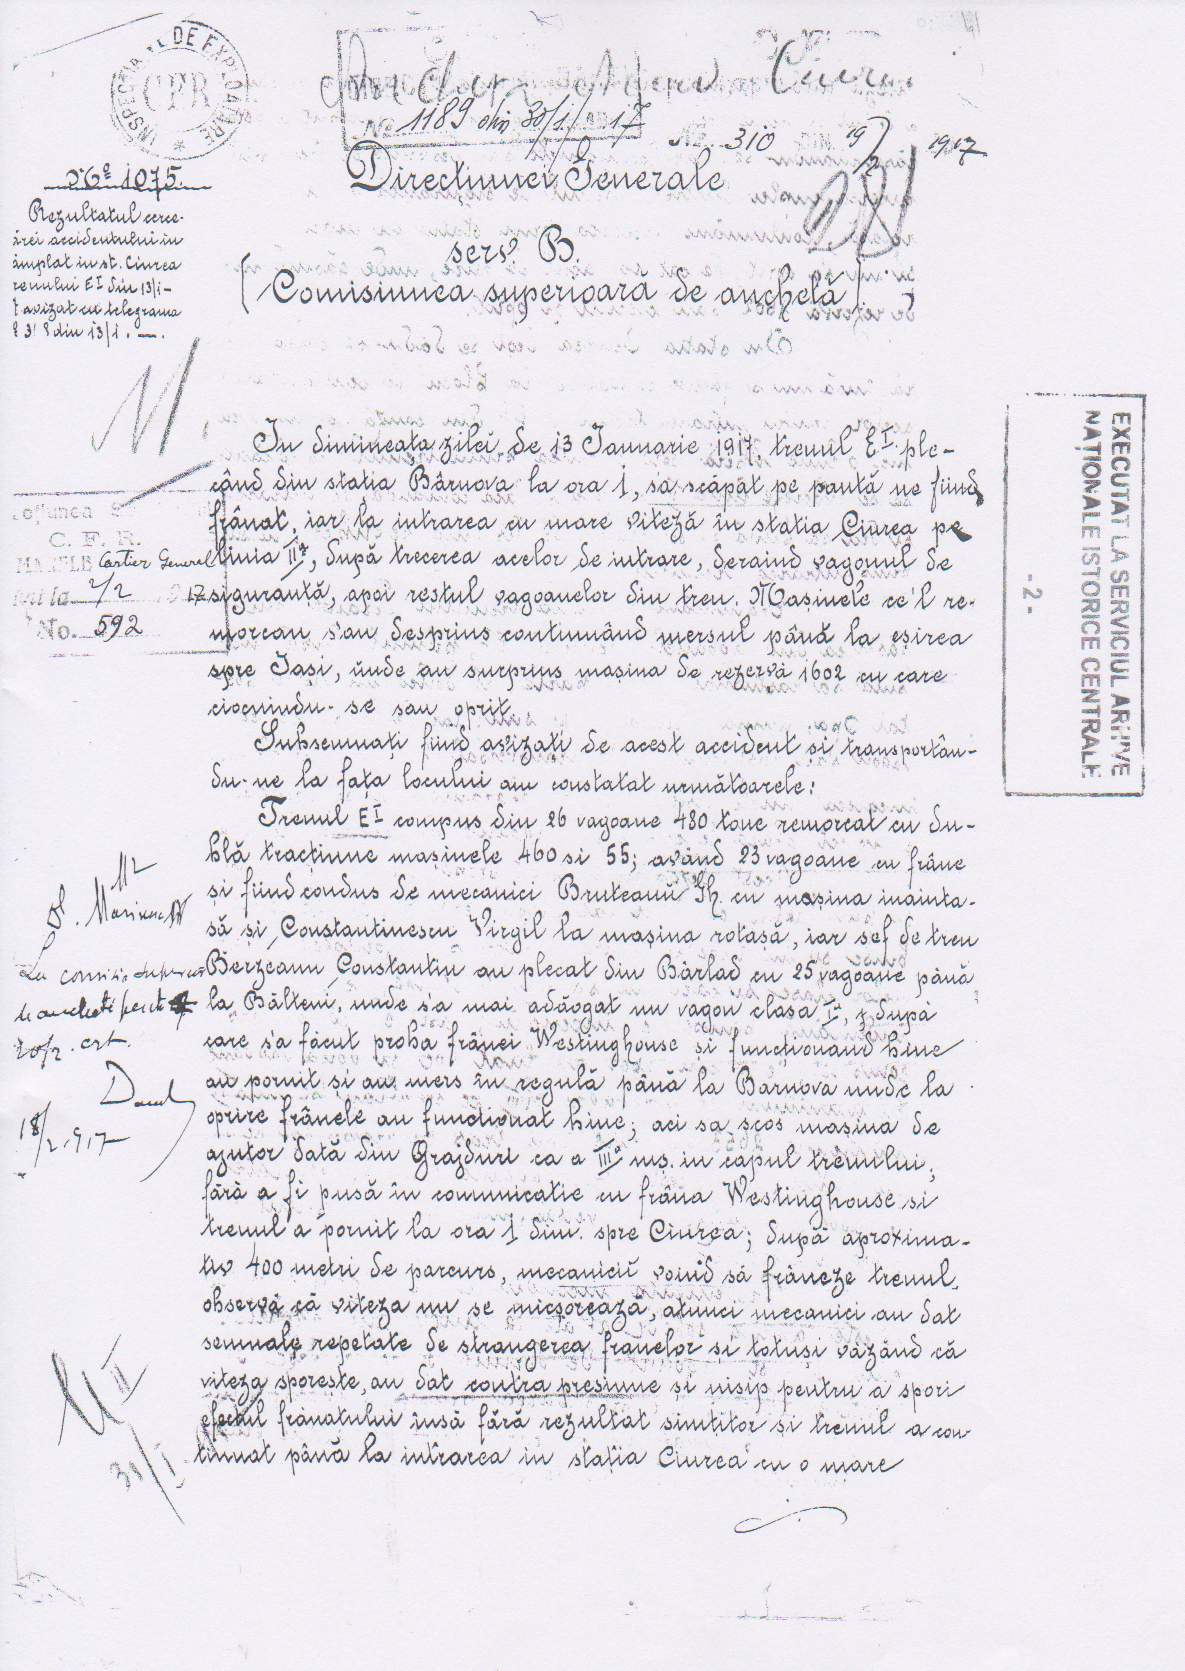 INSPECTIA DE EXPLOATARE
CPR
Dos. Acc. Ciurea
No 1189 din 30/1/ 17
No. 310 19/2 1917
Directiunei Generale
No 1075
Rezultatul cerce-
tărei accidentului în
tâmplat in st. Ciurea
trenului E I din 13/1 -
avizat cu telegrama
din 13/1. —
serv. B.
(Comisiunea superioara de anchetă)
EXECUTAT LA SERVICIUL ARHIVE
NAȚIONALE ISTORICE CENTRALE
- 2 -
C. F. R.
MARELE Cartier General
2/2 17
No. 592
In dimineața zilei de 13 Ianuarie 1917, trenul E I ple-
când din statia Bârnova la ora 1, sa scăpat pe pantă ne fiind
frânat, iar la intrarea cu mare viteză în statia Ciurea pe
linia II a, după trecerea acelor de intrare, deraind vagonul de
siguranță, apoi restul vagoanelor din tren. Mașinele ce'l re-
morcau s'au desprins continuând mersul până la eșirea
spre Iași, unde au surprins mașina de rezervă 1602 cu care
ciocnindu-se sau oprit.
Subsemnați fiind avizați de acest accident și transportân-
du-ne la fața locului am constatat următoarele:
Trenul E I compus din 26 vagoane 480 tone remorcat cu du-
blă tracțiune mașinele 460 si 55; având 23 vagoane cu frâne
și fiind condus de mecanici Bruteanu Gh. cu mașina inainta-
să și Constantinescu Virgil la mașina rotașă, iar sef de tren
Berzeanu Constantin au plecat din Bârlad cu 25 vagoane până
la Bălteni, unde s'a mai adăogat un vagon clasa I a, după
care s'a făcut proba frânei Westinghouse și funcționand bine
au pornit și au mers în regulă până la Barnova unde la
oprire frânele au functionat bine; aci sa scos mașina de
ajutor dată din Grajduri ca a III a mș. in capul trenului,
fără a fi pusă în comunicatie cu frâna Westinghouse si
trenul a pornit la ora 1 dim. spre Ciurea; după aproxima-
tiv 400 metri de parcurs, mecanicii voind să frâneze trenul,
observă că viteza nu se micșorează, atunci mecanici au dat
semnale repetate de strangerea franelor și totuși văzând că
viteza sporește, au dat contra presiune și nisip pentru a spori
efectul frânatului însă fără rezultat simțitor și trenul a con-
tinuat până la intrarea in stația Ciurea cu o mare
La comisia superioara
de ancheta
20/2. crt.
18/2.917
31/I